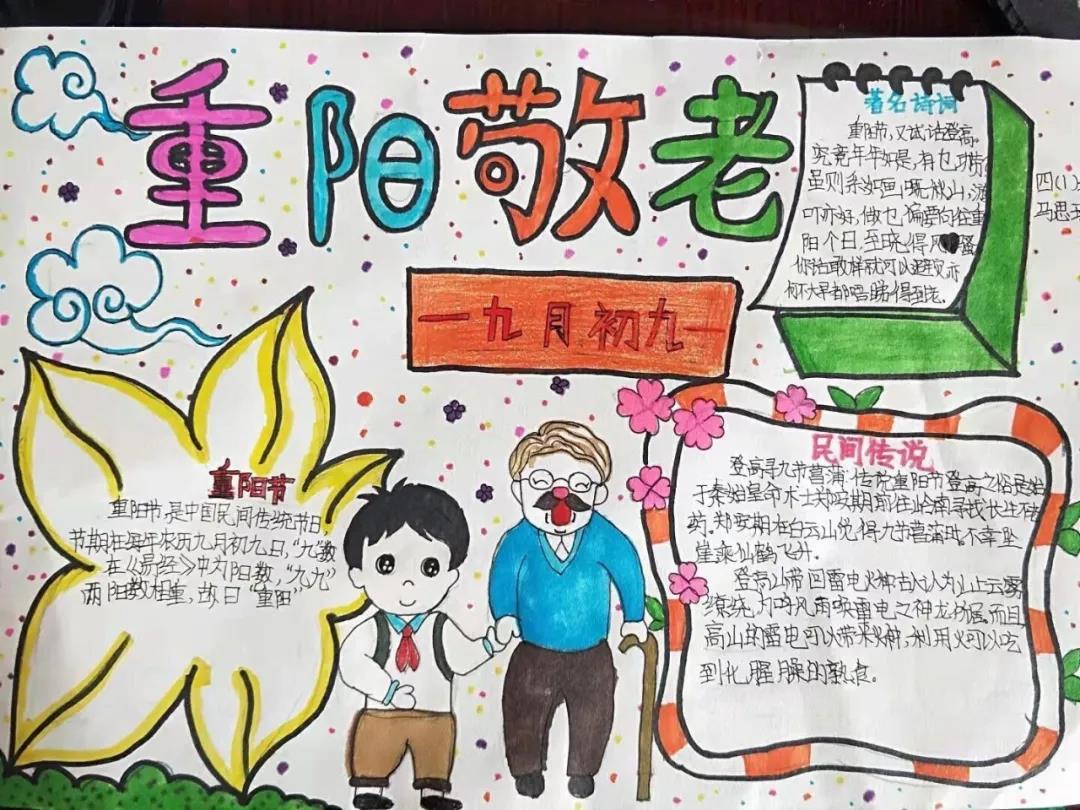 重阳敬老
一九月初九一
著名诗词
重阳节,又试话登高.
究竟年年如是,有乜功劳
虽则系如画嘅秋山,游
吖亦好,做乜偏要向往重
阳个日,至晓得风骚
你拍敢样就可以避
都唔
得到老.
四(1)
马思
重阳节
重阳节,是中国民间传统节日,
节期在每年农历九月初九日,“九”数
在《易经》中为阳数,“九九”
两阳数相重,故曰“重阳”
民间传说
登高寻九节菖蒲:传说重阳节登高之俗是始
于秦始皇命术士郑安期前往岭南寻找长生不老
药.郑安期在白云山觅得九节菖蒲时,不幸坠
崖乘仙鹤飞升.
登高山带回雷电火种古人认为山上云雾
缭绕,为呼风雨唤雷电之神龙所居,而且
高山的雷电可以带来火种,利用火可以吃
到化腥臊的熟食。